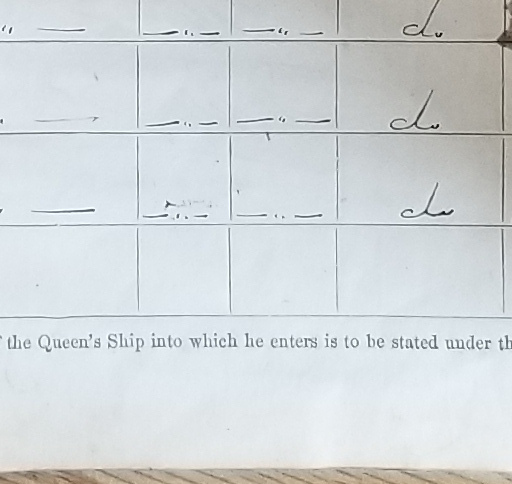 " — — " — — " — do.
— — " — — " — do.
— — " — — " — do
the Queen's Ship into which he enters is to be stated under